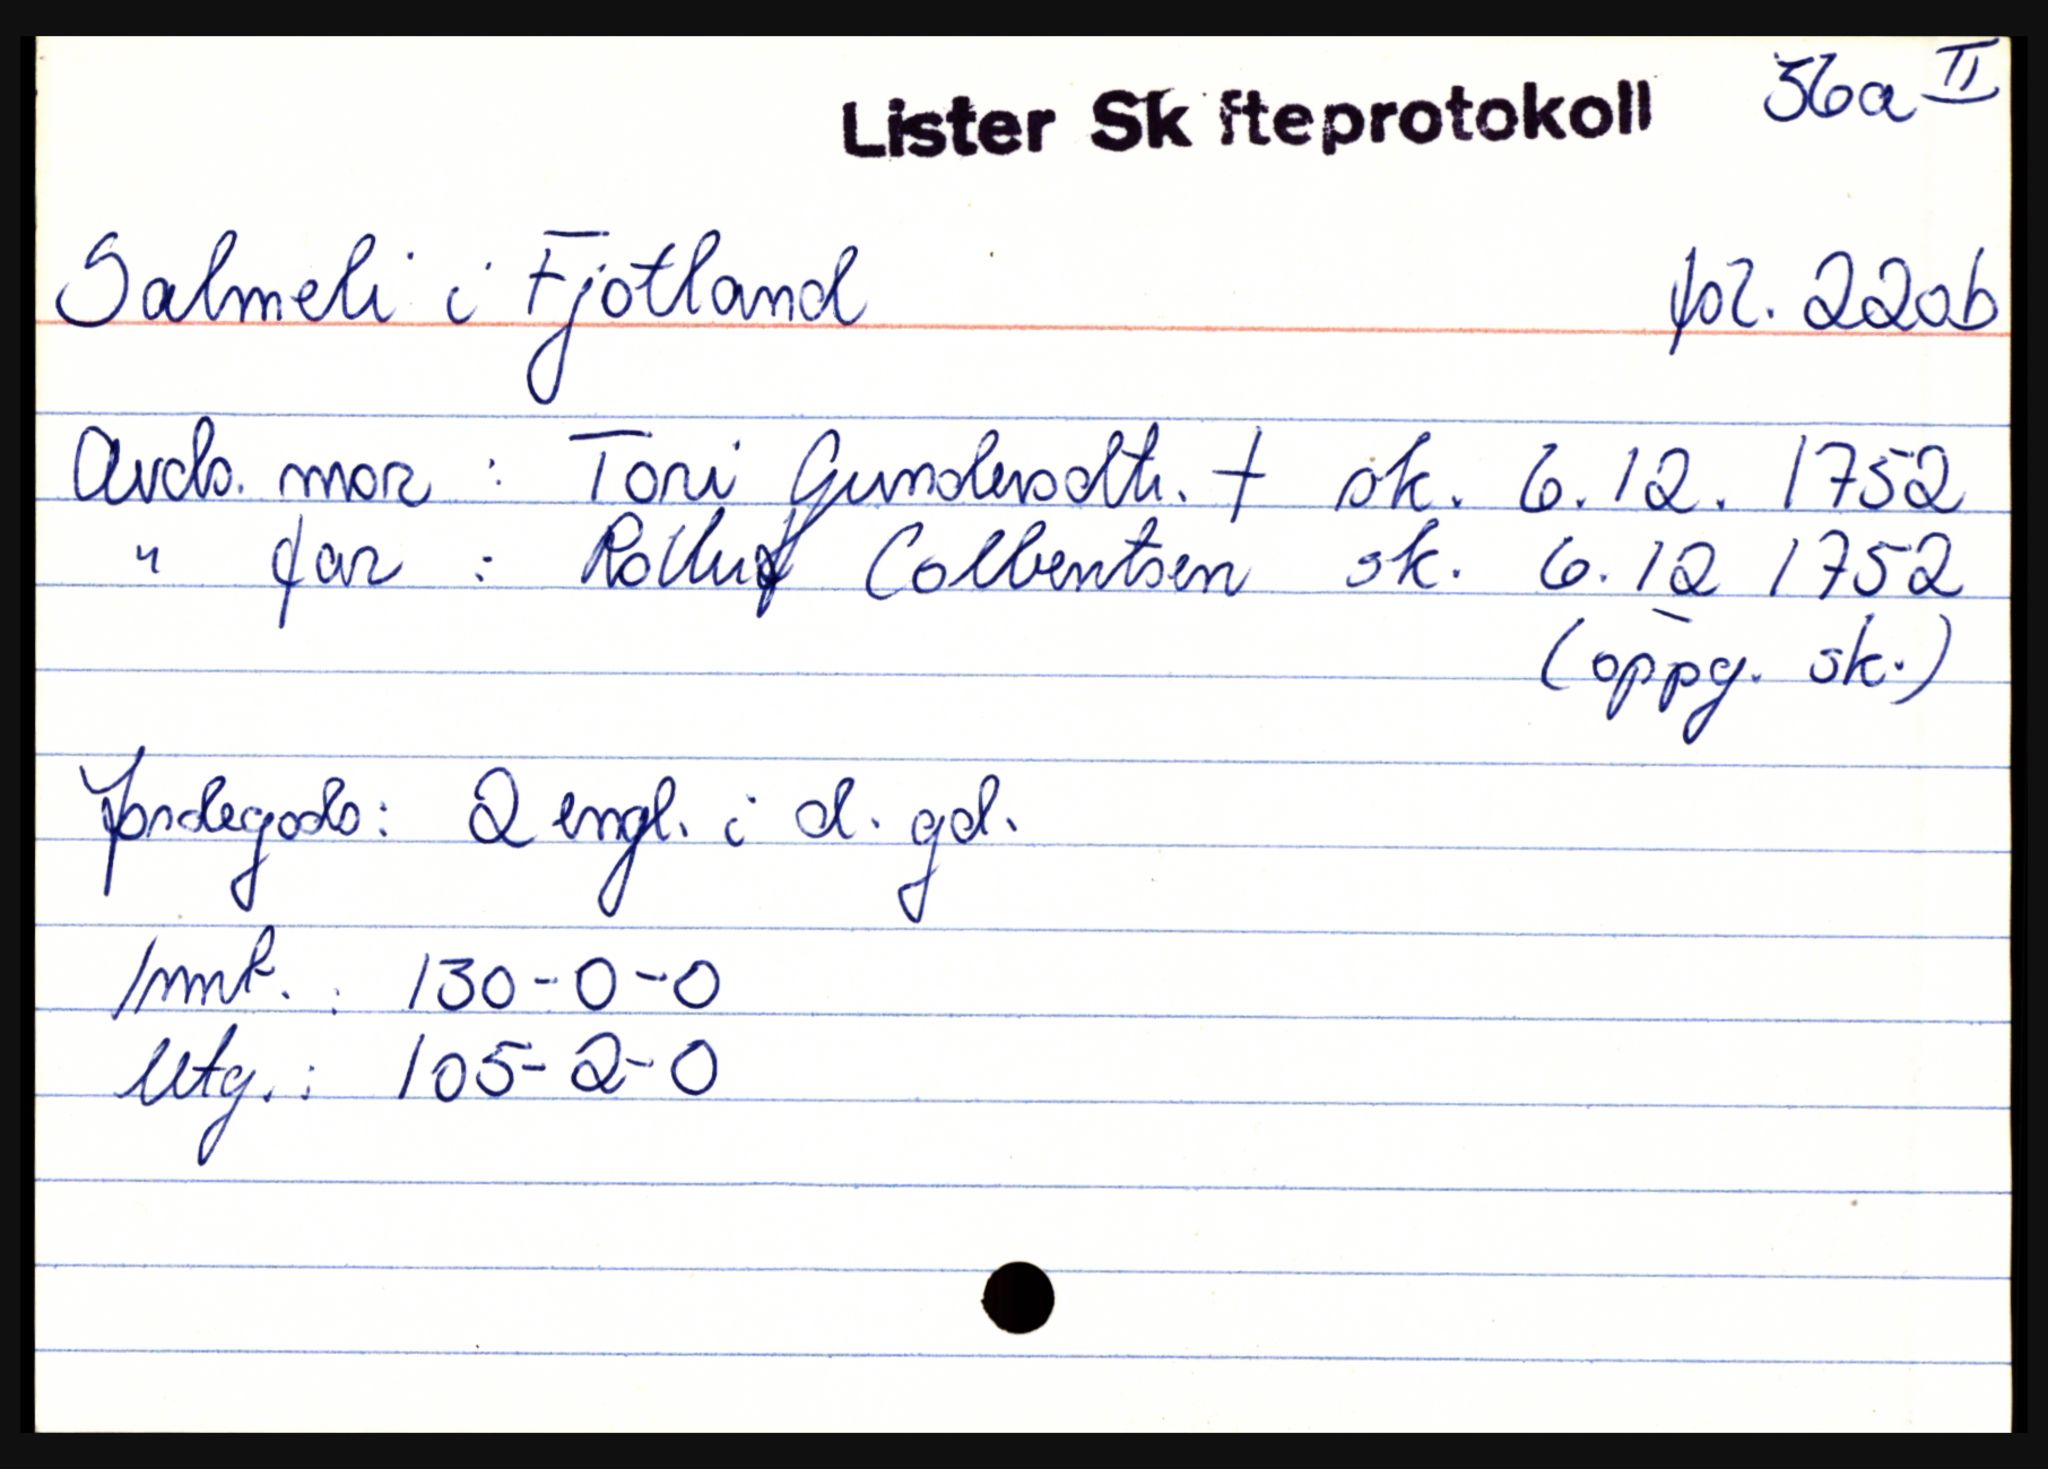 Lister Skifteprotokoll 56a II
Salmeli i Fjotland fol. 220b
Avds. mor : Tori Gundersdtr. † sk. 6.12. 1752
" far : Rolluf Colbentsen sk. 6.12 1752
(oppg. sk.)
Jordegods: 2 engl. i d. gd.
Innt. : 130-0-0
Utg. : 105-2-0